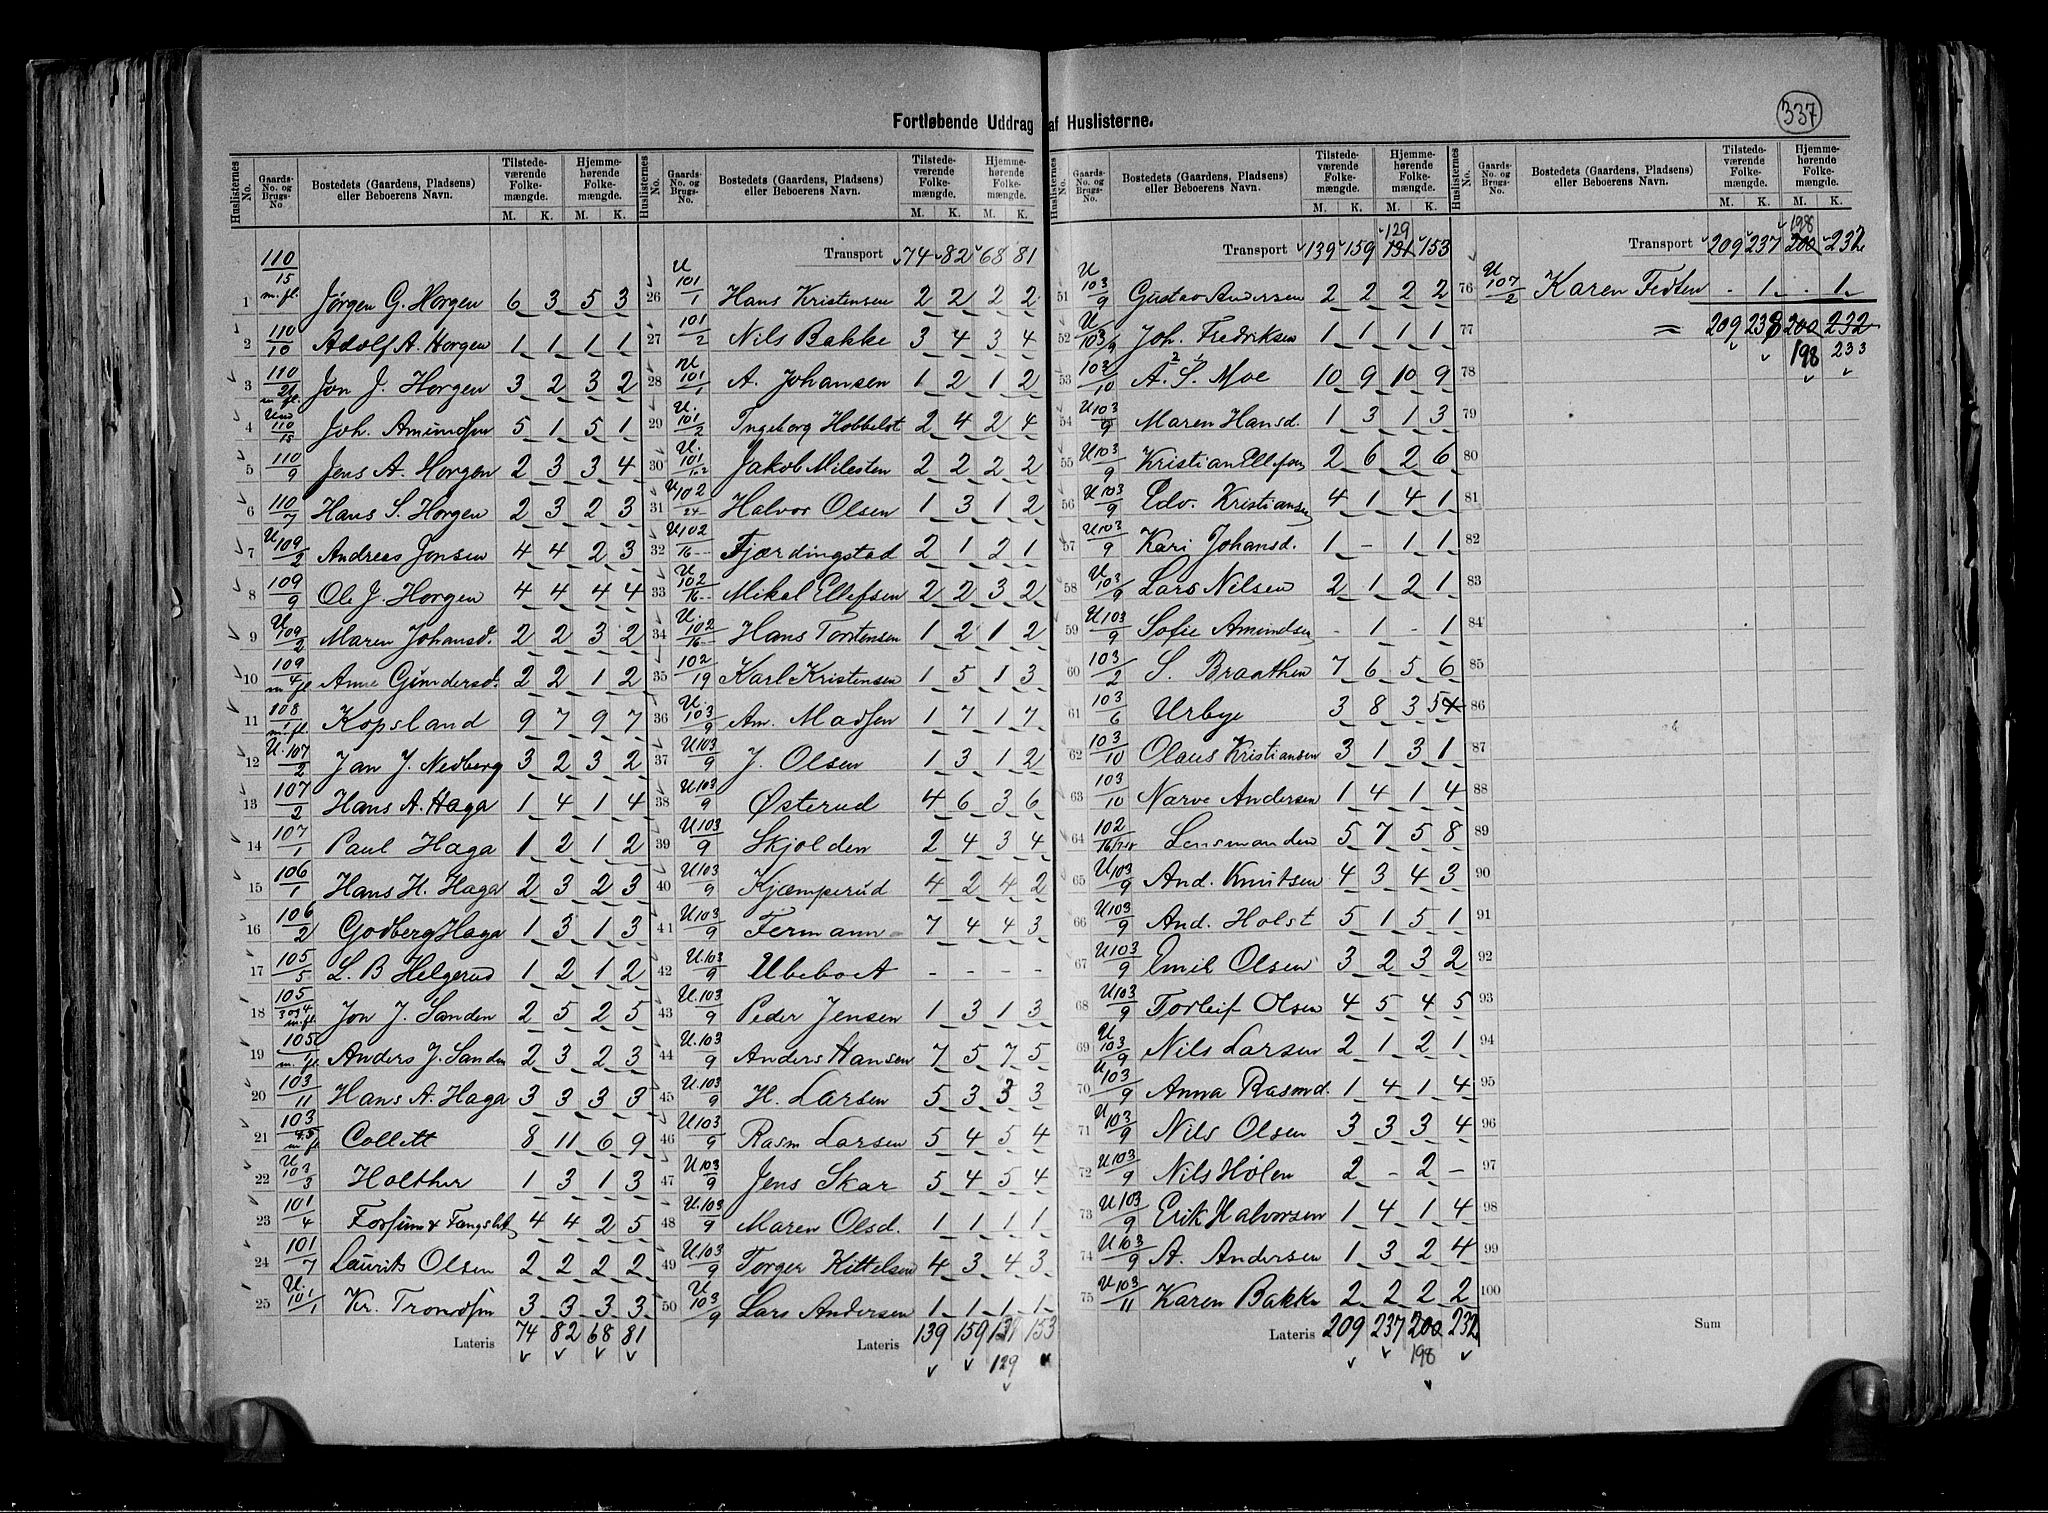 337
Fortløbende Uddrag af Huslisterne.
Huslisternes No. | Gaards-No. og Brugs-No. | Bostedets (Gaardens, Pladsens) eller Beboerens Navn. | Tilstedeværende Folkemængde. M. K. | Hjemmehørende Folkemængde. M. K.
1 110/15 m. fl. Jørgen G. Horgen 6 3 5 3
2 110/10 Adolf A. Horgen 1 1 1 1
3 110/21 m. fl. Jon J. Horgen 3 2 3 2
4 Und 110/15 Joh. Amundsen 5 1 5 1
5 110/9 Jens A. Horgen 2 3 3 4
6 110/7 Hans S. Horgen 2 3 2 3
7 U 109/2 Andreas Jonsen 4 4 2 3
8 109/9 Ole J. Horgen 4 4 4 4
9 U 109/2 Maren Johansd. 2 2 3 2
10 109/4 m fl Anne Gundersd. 2 2 1 2
11 108/1 m. fl. Kopsland 9 7 9 7
12 U. 107/2 Jan J. Nedberg 3 2 3 2
13 107/2 Hans A. Haga 1 4 1 4
14 107/1 Paul Haga 1 2 1 2
15 106/1 Hans H. Haga 2 3 2 3
16 106/2 Godberg Haga 1 3 1 3
17 105/5 L. B Helgerud 1 2 1 2
18 105/3 og 4 m. fl. Jon J. Sanden 2 5 2 5
19 105/1 m. fl. Anders J. Sanden 2 3 2 3
20 103/11 Hans A. Haga 3 3 3 3
21 103 m fl Collett 8 11 6 9
22 U 103/3 Holther 1 3 1 3
23 101/4 Forsum & 4 4 2 5
24 101/7 Laurits Olsen 2 2 2 2
25 U. 101/1 Kr. Trondsen 3 3 3 3
Lateris 74 82 68 81
Transport 74 82 68 81
26 U 101/1 Hans Kristensen 2 2 2 2
27 101/2 Nils Bakke 3 4 3 4
28 U 101/1 A. Johansen 1 2 1 2
29 U. 101/2 Ingeborg Hobbelst 2 4 2 4
30 U. 101/102 Jakob Milesten 2 2 2 2
31 U 102/24 Halvor Olsen 1 3 1 2
32 U 102/16 Fjærdingstad 2 1 2 1
33 U 102/16 Mikal Ellefsen 2 2 3 2
34 U. 102/16 Hans Torstensen 1 2 1 2
35 102/19 Karl Kristensen 1 5 1 3
36 U. 103/9 Am. Madsen 1 7 1 7
37 U 103/9 J. Olsen 1 3 1 2
38 U. 103/9 Østerud 4 6 3 6
39 U. 103/9 Skjolden 2 4 3 4
40 U 103/9 Kjæmperud 4 2 4 2
41 U. 103/9 Fermann 7 4 4 3
42 U. 103/9 Ubeboet - - - -
43 U. 103/9 Peder Jensen 1 3 1 3
44 U. 103/9 Anders Hansen 7 5 7 5
45 U. 103/9 H. Larsen 5 3 3 3
46 U 103/9 Rasm Larsen 5 4 5 4
47 U 103/9 Jens Skar 5 4 5 4
48 U. 103/9 Maren Olsd. 1 1 1 1
49 U. 103/9 Torger Kittelsen 4 3 4 3
50 U 103/9 Lars Andersen 1 1 1 1
Lateris 139 159 131 153
129
129
Transport 139 159 131 153
51 U 103/9 Gustav Andersen 2 2 2 2
52 U 103/9 Joh. Fredriksen 1 1 1 1
53 103/10 A. S. Moe 10 9 10 9
54 U 103/9 Maren Hansd. 1 3 1 3
55 U 103/9 Kristian Ellefsen 2 6 2 6
56 U 103/9 Edv. Kristiansen 4 1 4 1
57 U 103/9 Kari Johansd. 1 - 1 1
58 U 103/9 Lars Nilsen 2 1 2 1
59 U 103/9 Sofie Amundsen - 1 - 1
60 103/2 S. Braathen 7 6 5 6
61 103/6 Urbye 3 8 3 5
62 103/10 Olaus Kristiansen 3 1 3 1
63 103/10 Narve Andersen 1 4 1 4
64 102/16/24 Lensmanden 5 7 5 8
65 U 103/9 And. Knutsen 4 3 4 3
66 U 103/9 And. Holst 5 1 5 1
67 U 103/9 Emil Olsen 3 2 3 2
68 U 103/9 Torleif Olsen 4 5 4 5
69 U 103/9 Nils Larsen 2 1 2 1
70 U 103/9 Anna Rasmd. 1 4 1 4
71 U 103/9 Nils Olsen 3 3 3 4
72 U 103/9 Nils Holen 2 - 2 -
73 U 103/9 Erik Halvorsen 1 4 1 4
74 U 103/9 A. Andersen 1 3 2 4
75 U 103/11 Karen Bakke 2 2 2 2
Lateris 209 237 200 232
198
198
Transport 209 237 200 232
76 U 107/2 Karen Fedten - 1 - 1
77 = 209 238 200 232
198 233
78
79
80
81
82
83
84
85
86
87
88
89
90
91
92
93
94
95
96
97
98
99
100
Sum